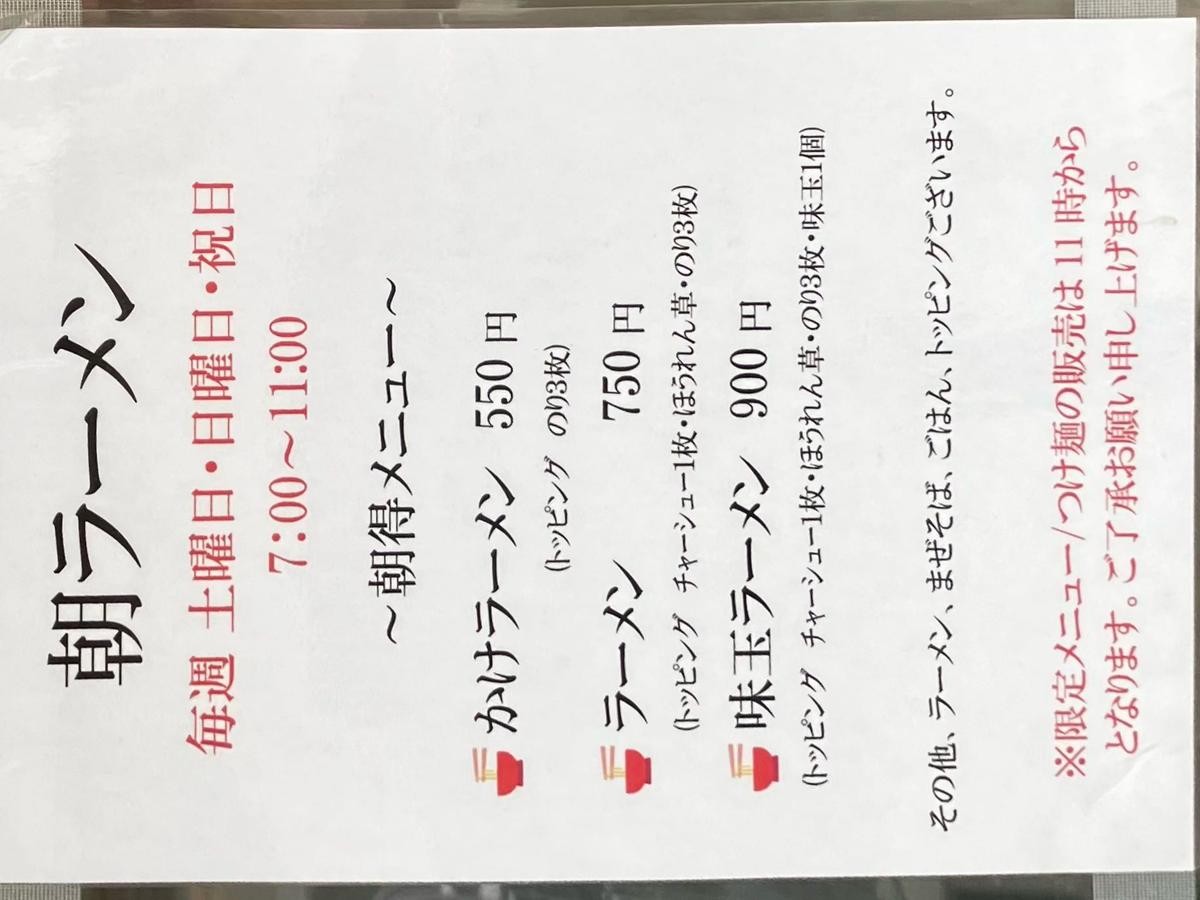 朝ラーメン
毎週 土曜日・日曜日・祝日
7:00～11:00
～朝得メニュー～
かけラーメン 550円
(トッピング のり3枚)
ラーメン 750円
(トッピング チャーシュー1枚・ほうれん草・のり3枚)
味玉ラーメン 900円
(トッピング チャーシュー1枚・ほうれん草・のり3枚・味玉1個)
その他、ラーメン、まぜそば、ごはん、トッピングございます。
※限定メニュー/つけ麺の販売は11時から
となります。ご了承お願い申し上げます。